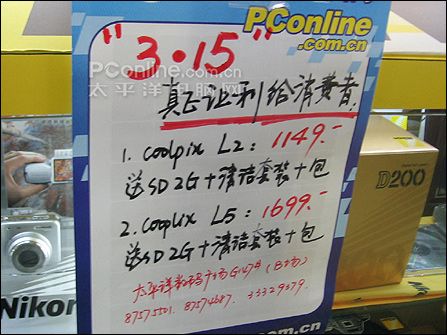 PConline
.com.cn
"3·15"
PConline
.com.cn
太平洋电脑网
真正让利给消费者.
1. coolpix L2: 1149.-
送SD 2G+清洁套装+包
2. coolpix L5: 1699.-
送SD 2G+清洁套装+包
太平洋数码市场
87575501. 87574687. 33329379.
D200
Nikon
.com.cn